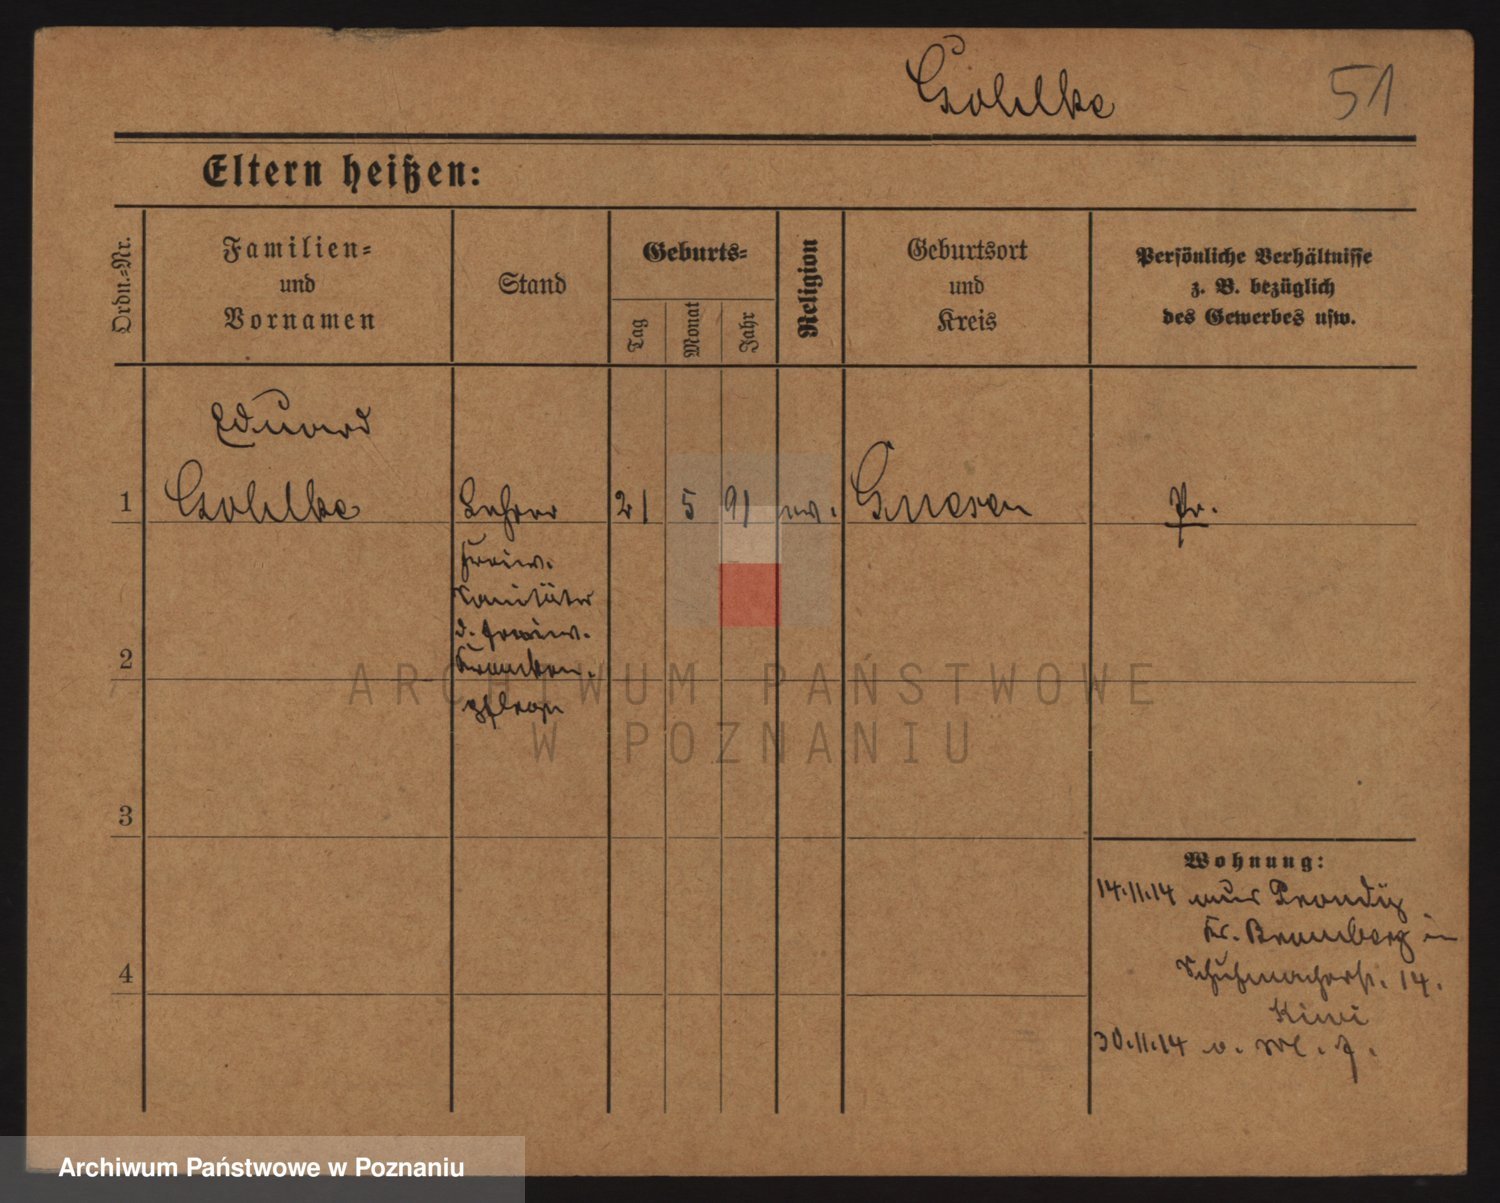 Gohlke 51
Eltern heißen:
Ordn.-Nr.
Familien-
und
Vornamen
Stand
Geburts-
Tag
Monat
Jahr
Religion
Geburtsort
und
Kreis
Persönliche Verhältnisse
z. B. bezüglich
des Gewerbes usw.
Eduard
1 Gohlke Lehrer 21 5 91 ev. Gnesen Pr.
freiw.
Sanitäter
d. freiw.
2 Kranken-
pflege
ARCHIWUM PAŃSTWOWE
W POZNANIU
3
Wohnung:
14.11.14 aus
Kr. Bromberg in
4 Schuhmacherst. 14.
30.11.14 v.
Archiwum Państwowe w Poznaniu